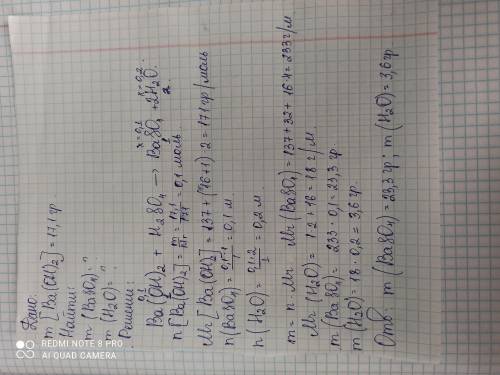 Дано:
m [Ba(OH)₂] = 17,1 гр
Найти:
m (BaSO₄) - ?
m (H₂O) = ?
Решение:
0,1 x=0,1 x=0,2
Ba(OH)₂ + H₂SO₄ → BaSO₄ + 2H₂O.
1 1 2
n [Ba(OH)₂] = m/Mr = 17,1/171 = 0,1 моль
Mr [Ba(OH)₂] = 137 + (16+1)·2 = 171 гр/моль
n (BaSO₄) = 0,1·1/1 = 0,1 м
n (H₂O) = 0,1·2/1 = 0,2 м.
m = n·Mr. Mr (BaSO₄) = 137 + 32 + 16·4 = 233 г/м
Mr (H₂O) = 1·2 + 16 = 18 г/м
m (BaSO₄) = 233·0,1 = 23,3 гр.
m (H₂O) = 18·0,2 = 3,6 гр
Отв: m (BaSO₄) = 23,3 гр; m (H₂O) = 3,6 гр
REDMI NOTE 8 PRO
AI QUAD CAMERA